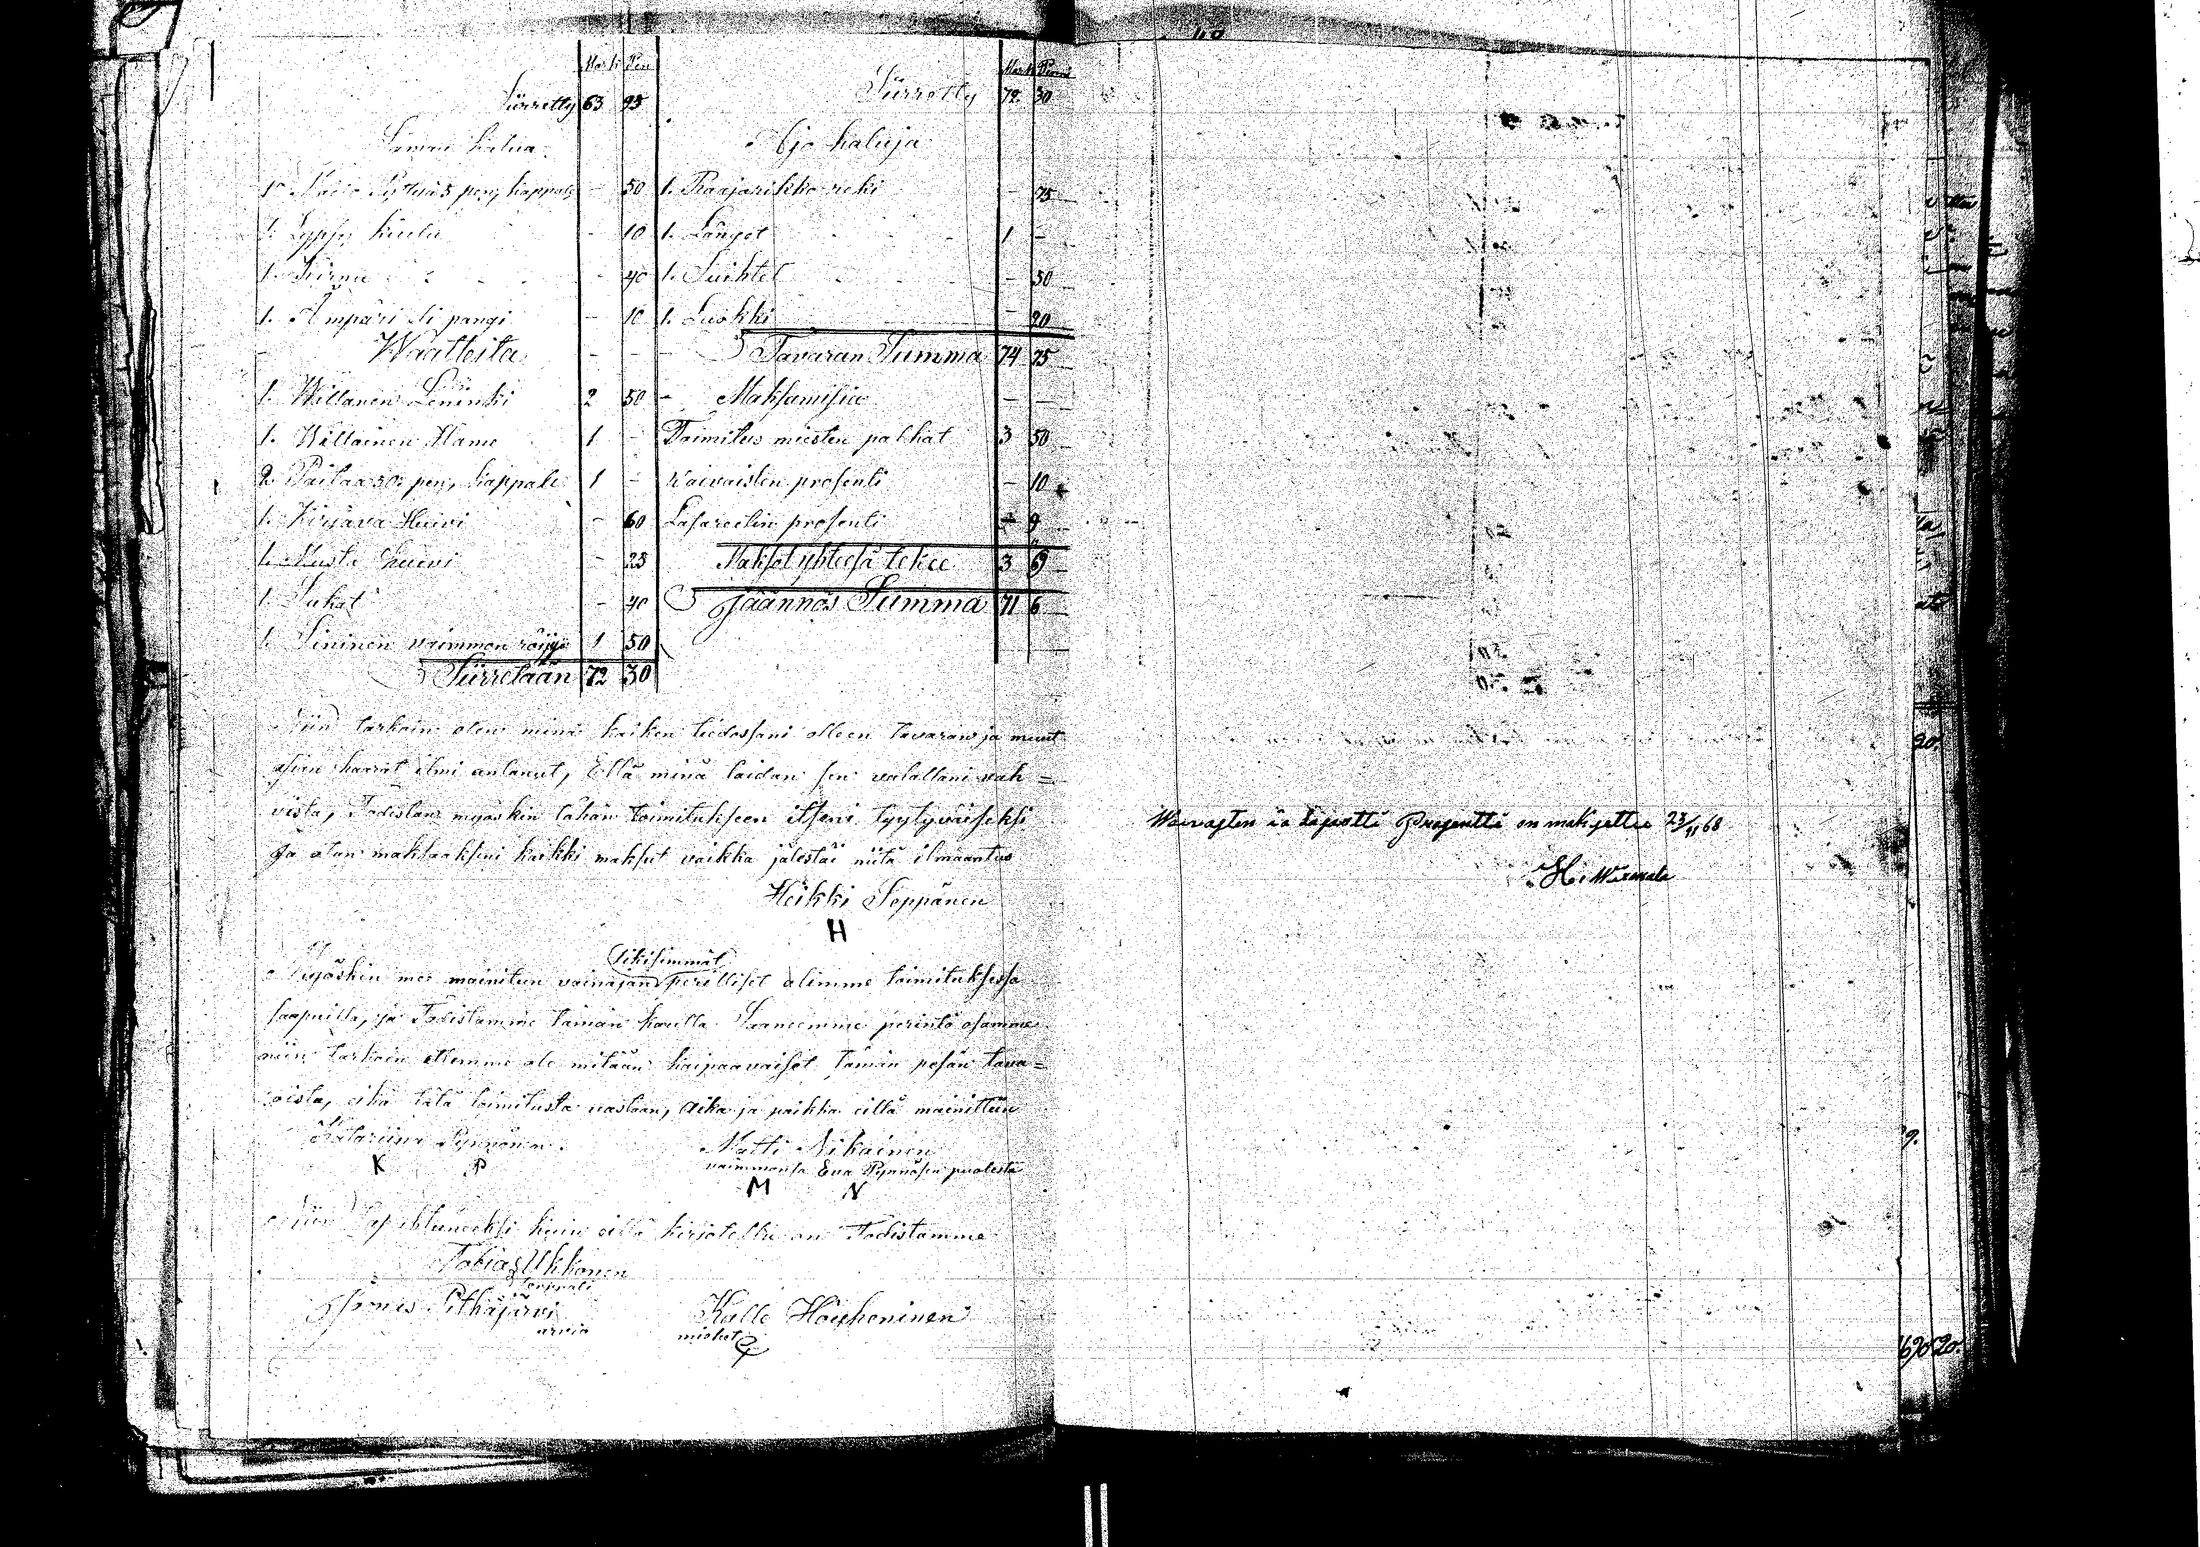 Mark Pen
Siirretty 63 95
Saman kalua
10 50
1. Lypsy kiulu - 10
1. Kirnu - 40
1. Ämpäri eli pangi - 10
Waatteita - -
1. Willanen Leninki 2 50
1. Willainen Hame 1 -
2. Paitaa 50 pen, kappale 1 -
1. Kirjava Huivi - 60
1. Musta huivi - 25
1. Sukat - 40
1. Sininen vaimmon röijy 1 50
Siirretään 72 30
Mark Penni
Siirretty 72 30
Ajo kaluja
1. Raajarikko reki - 75
1. Länget 1 -
1. Suihtet - 50
1. Luokki - 20
Tavaran Summa 74 75
- Maksamisia - -
Toimitus miesten palkat 3 50
vaivaisten prosenti - 10
Lasareetin prosenti - 9
Maksot yhteesä tekee 3 69
Jäännös Summa 71 6
Niin tarkoin olen minä kaiken tiedossani olleen tavaran ja muut
asian haarat ilmi antanut, Että minä taidan sen valallani vah=
vista, Todistan myöskin tähän toimitukseen itseni tyytyväiseksi
Ja otan maksaakseni kaikki maksut vaikka jälestäi niitä ilmaantus
Heikki Seppänen
H
likisimmät
Myöskin me mainitun vainajan perilliset olimme toimituksessa
saapuilla, ja Todistamme tämän kautta Saaneemme perintö osamme
niin tarkoin ettemme ole mitään kaipaavaiset tämän pesän tava=
roista, eikä tätä toimitusta vastaan, Aika ja paikka eillä mainittuu
Katariina Pynnönen.
K P
Matti Nikainen
vaimmonsa Eva Pynnösen puolesta
M N
Niin tapahtuneeksi kuin eillä kirjotettu on Todistamme
Tobias Ukkonen
Pitkäjärvi
arvio
Kalle Höyheninen
miehet
Waivasten ia Lasarettі Prosentti on maksettu 23/11 68
H. Wirmala
20.
9.
690 20.